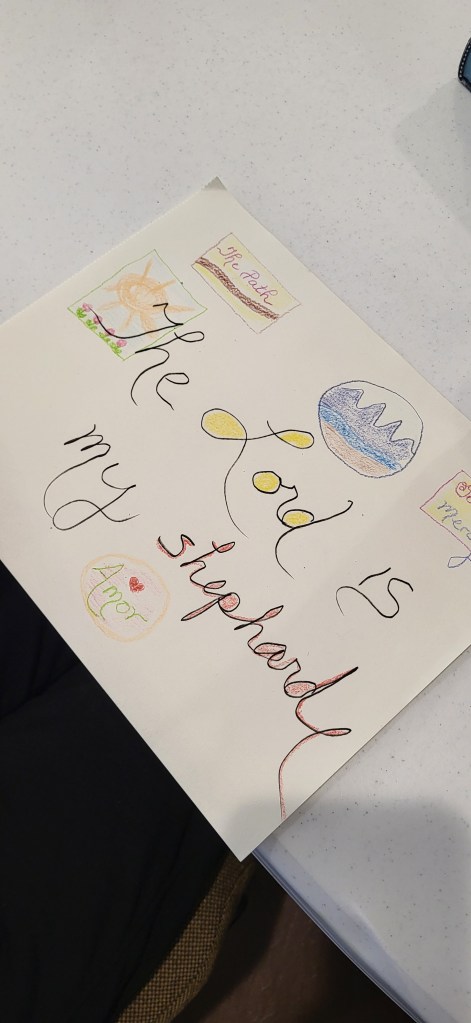 The Path
The Lord is
my shephard
Amor